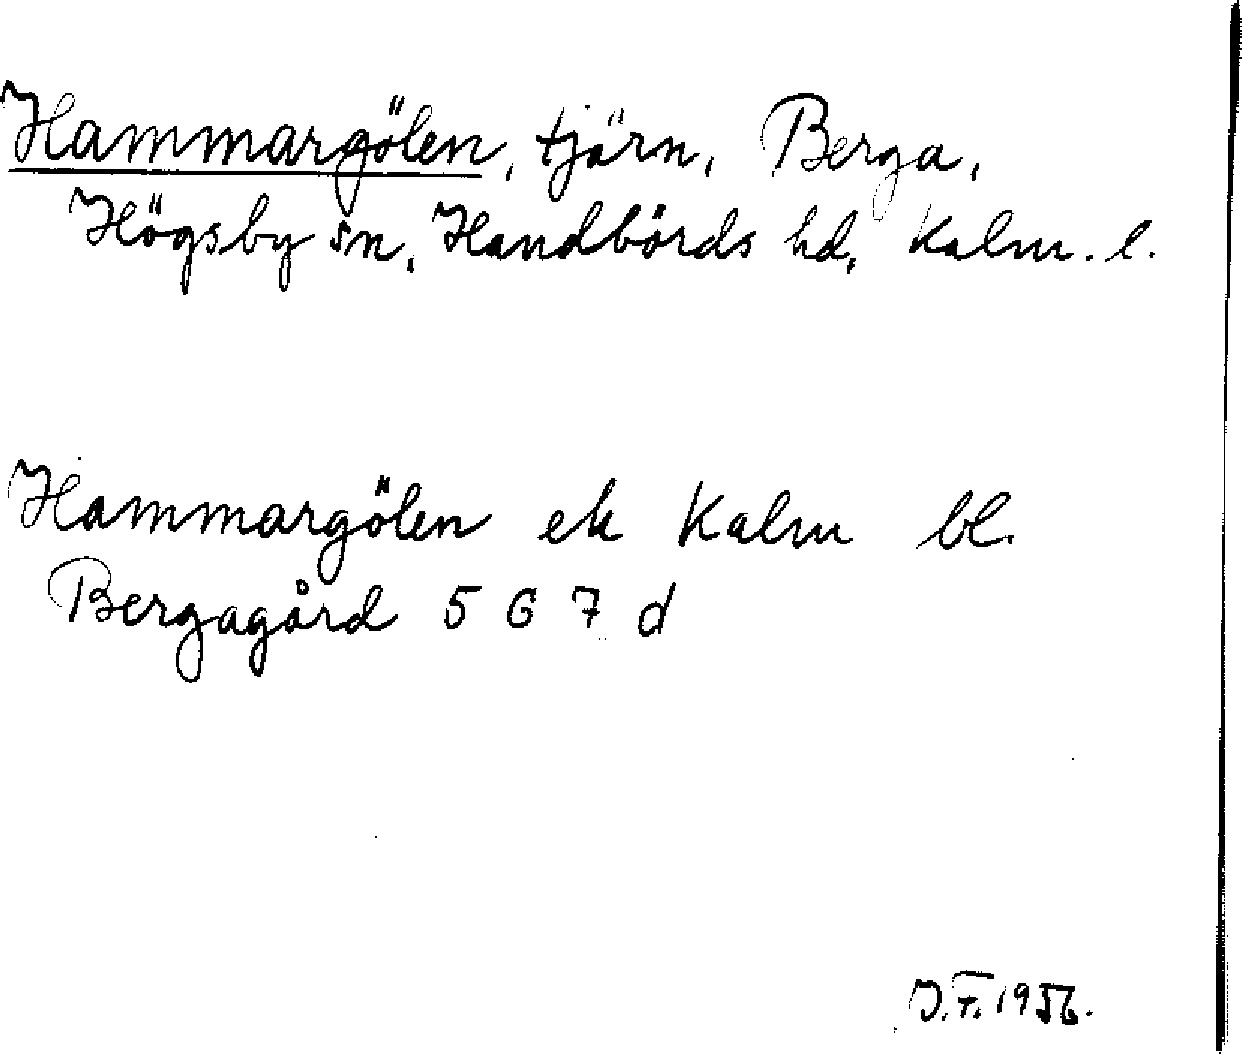 Hammargölen, tjärn, Berga,
Högsby sn, Handbörds hd, Kalm. l.
Hammargölen ek Kalm bl.
Bergagård 5 G 7 d
J.T. 1956.